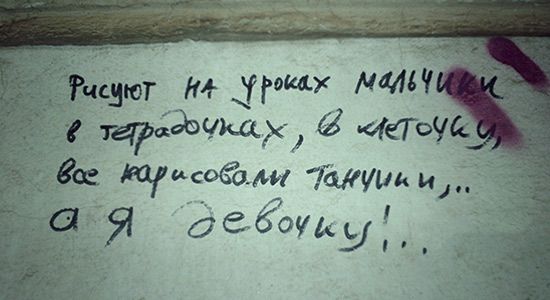 Рисуют на уроках мальчики
в тетрадочках, в клеточку,
все нарисовали танчики,..
а я девочку!...